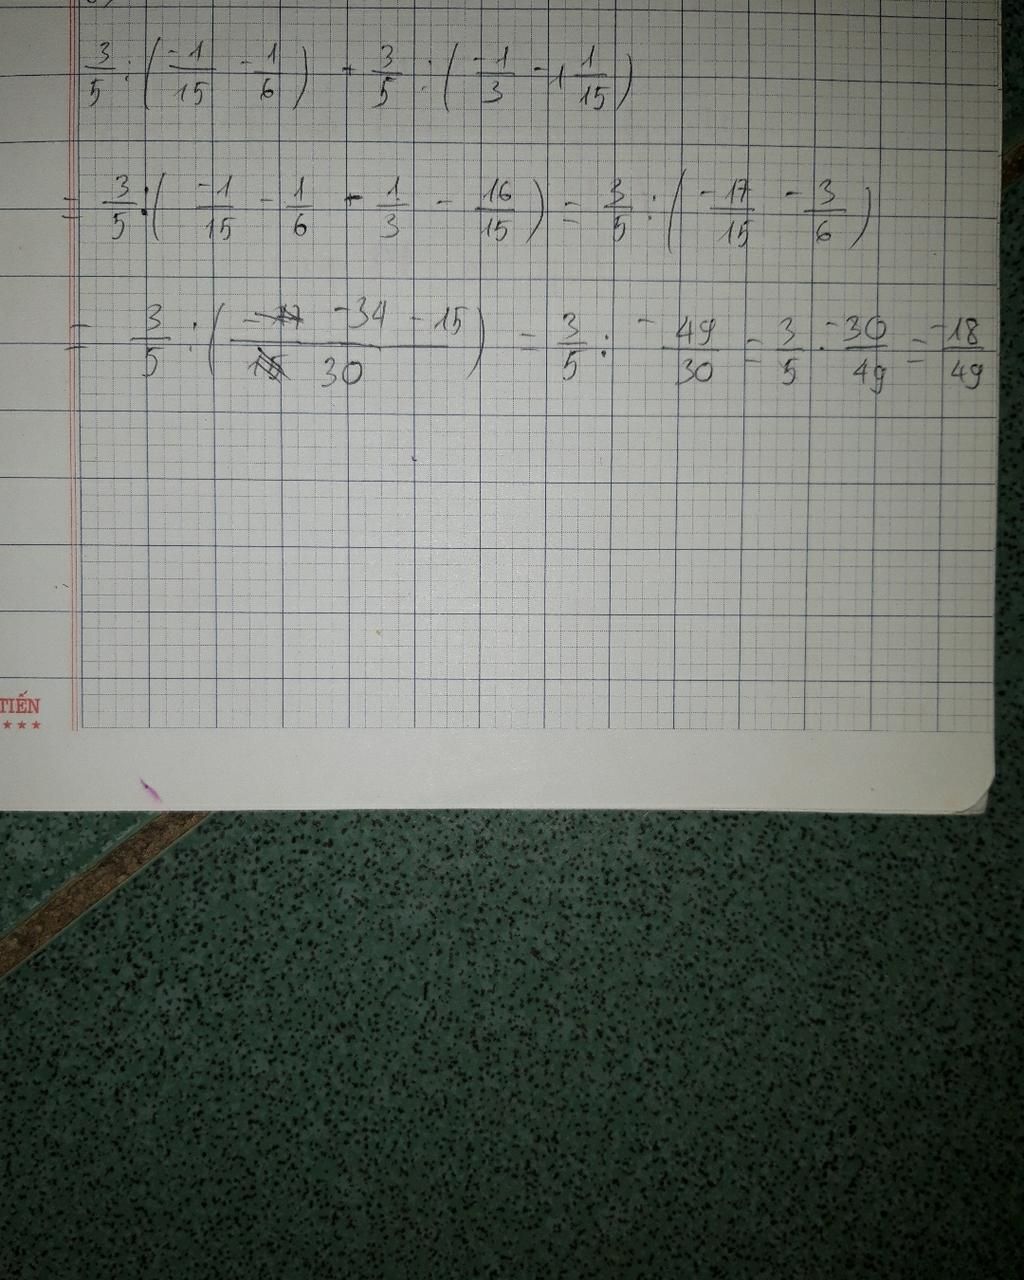 3/5 : (-1/15 - 1/6) + 3/5 : (-1/3 - 1 1/15)
= 3/5 : (-1/15 - 1/6 - 1/3 - 16/15) = 3/5 : (-17/15 - 3/6)
= 3/5 : (-34 - 15 / 30) = 3/5 : -49/30 = 3/5 . -30/49 = -18/49
TIẾN